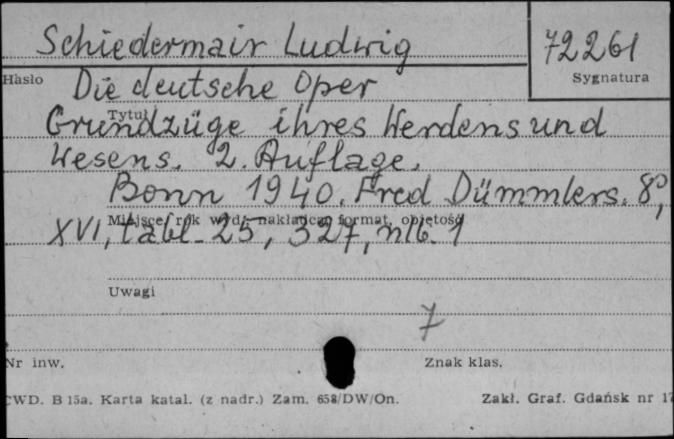 Schiedermair Ludwig
72261
Hasło
Sygnatura
Die deutsche Oper
Tytuł
Grundzüge ihres Werdens und
Wesens. 2. Auflage.
Bonn 1940. Fred Dümmlers. 8°,
Miejsce, rok wyd., nakładca, format, objętość
XVI, tabl. 25, 327, nlb. 1
Uwagi
7
Nr inw.
Znak klas.
CWD. B 15a. Karta katal. (z nadr.) Zam. 658/DW/On.
Zakł. Graf. Gdańsk nr 17